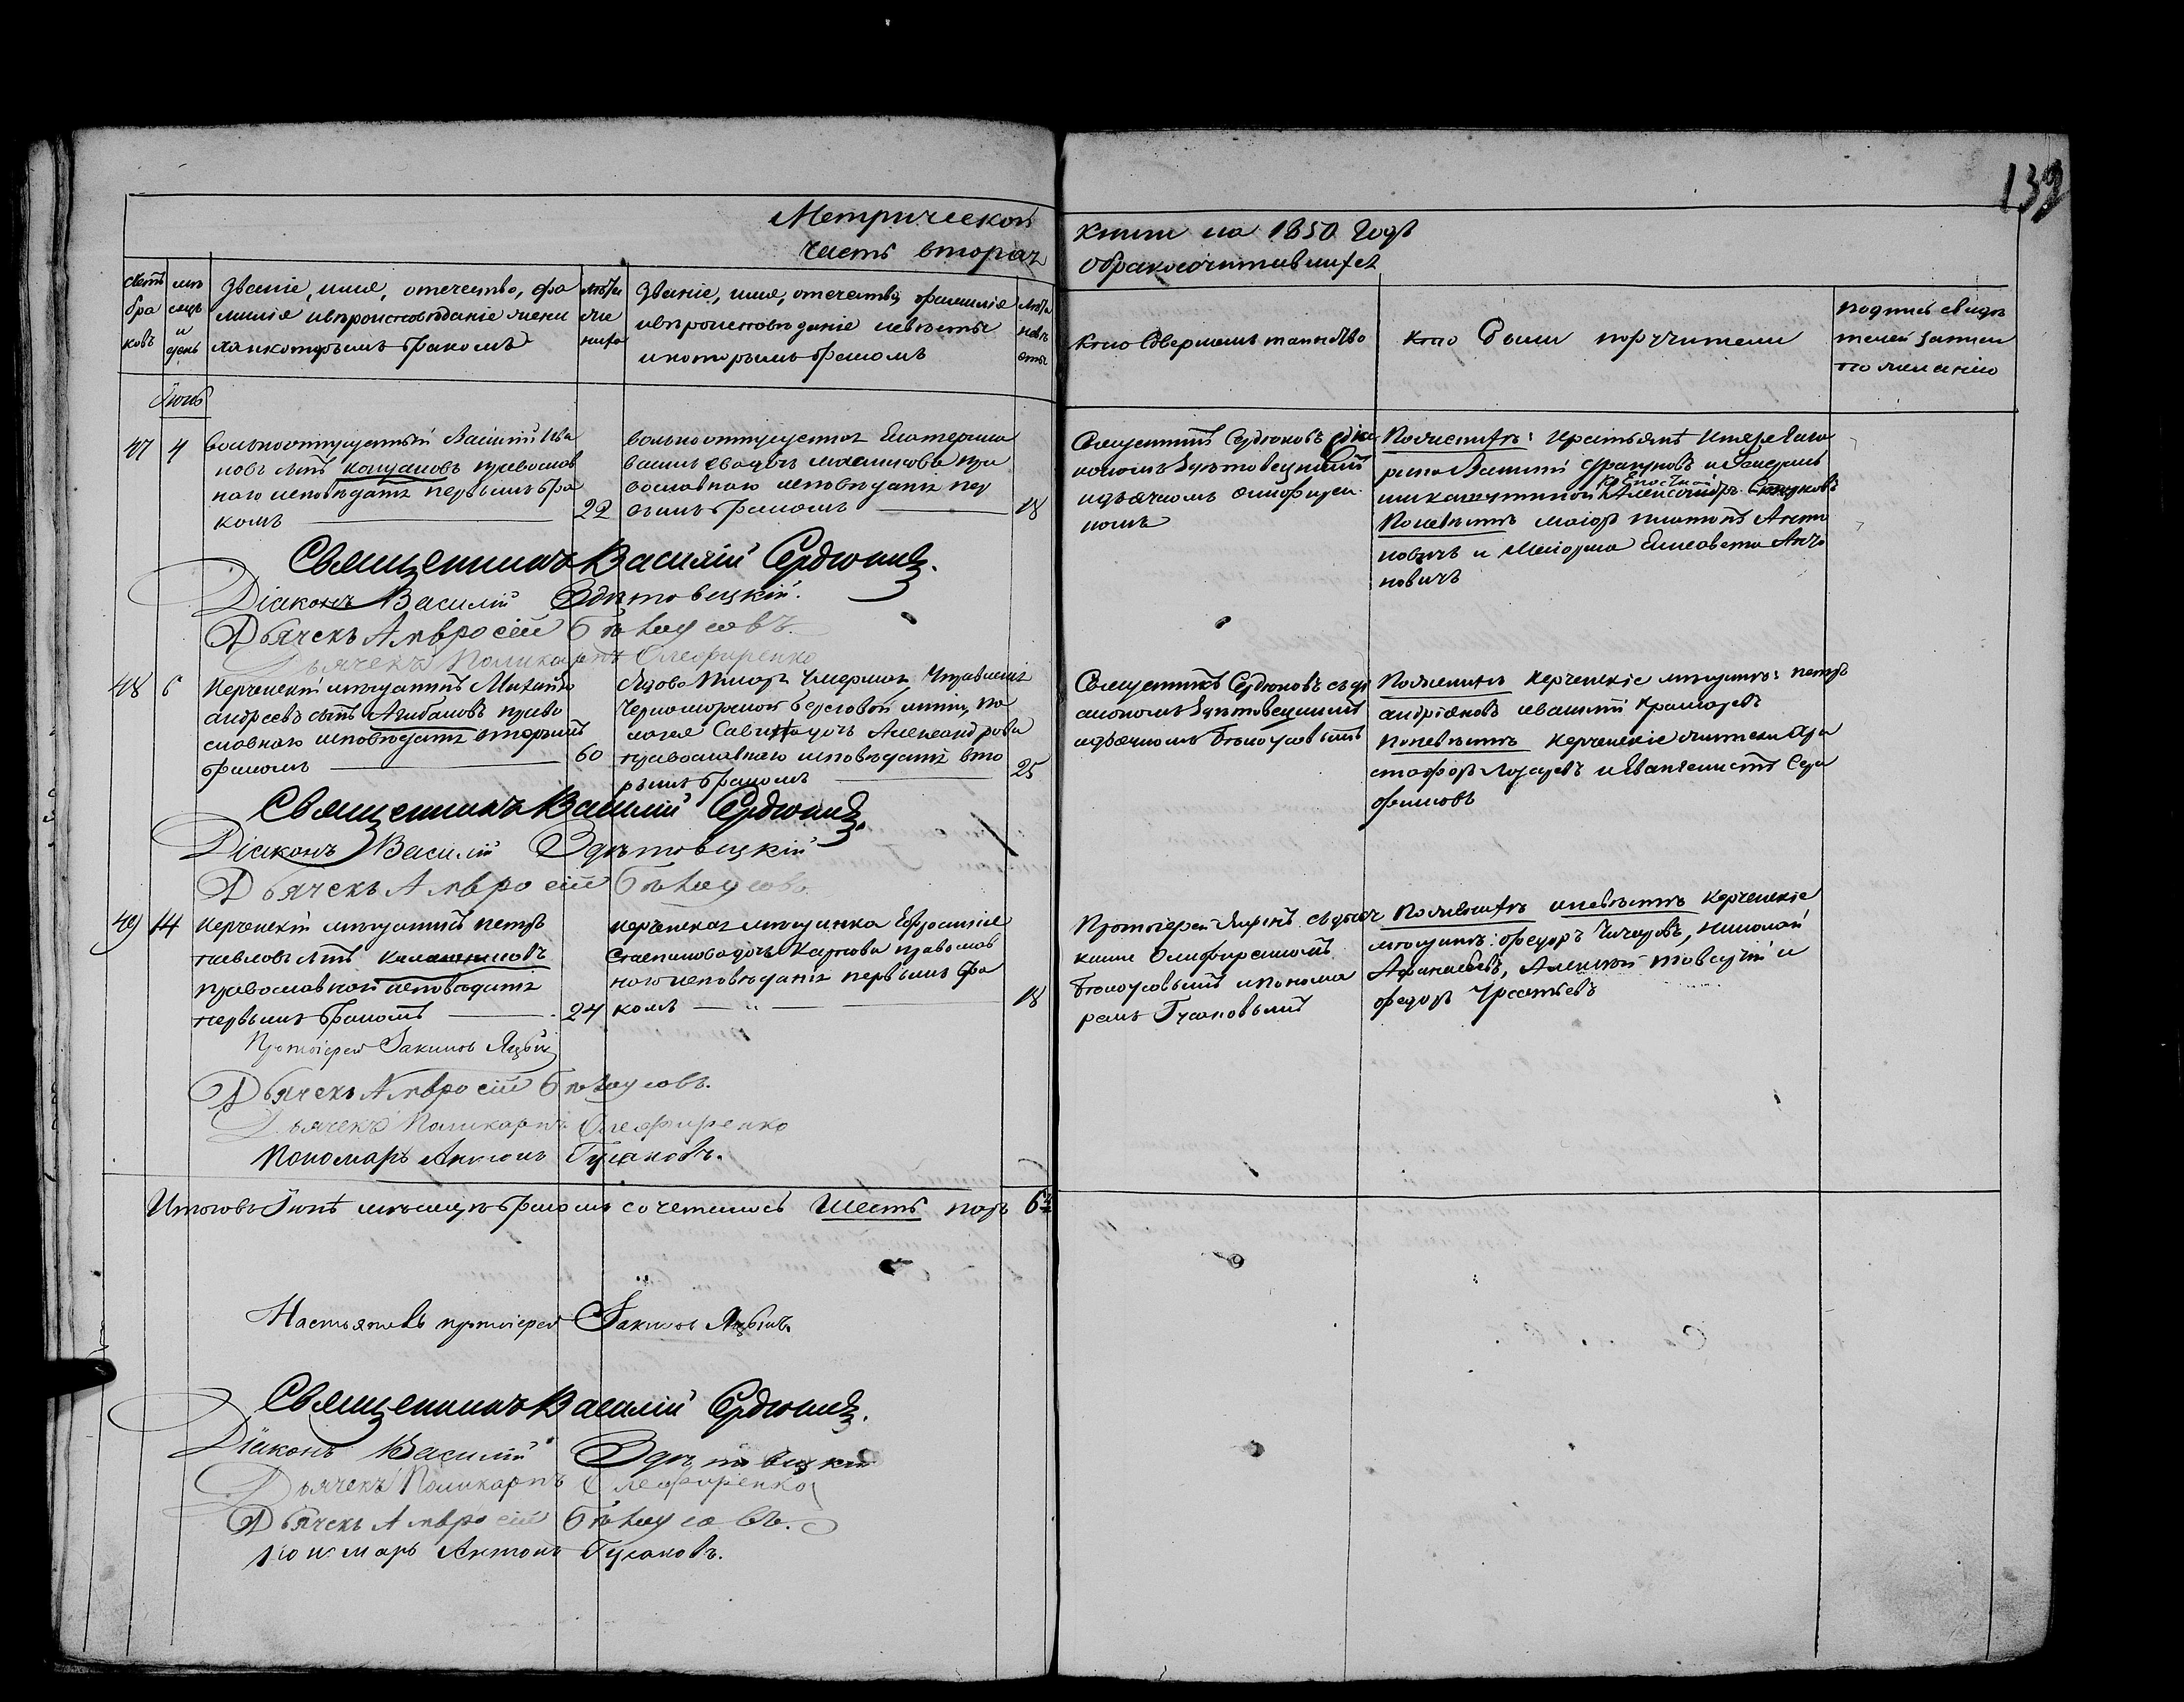 132
Метрической книги на 1850 годъ
Часть вторая о бракосочитавшихся
счетъ бра ковъ
мѣ сяцъ и день
Званіе, имя, отечество, фа
милія и вѣроисповѣданіе жени
ха и которымъ бракомъ
лѣта же ниха
Званіе, имя, отечество, фамилія
и вѣроисповѣданіе невѣсты
и которымъ бракомъ
лѣта невѣ сты
Кто совершалъ таинство
Кто были поручители
подпись свидѣ
телей записи
по желанію
Іюнь
47 4
вольноотпущенный Василій Ива
новъ сынъ православ
наго исповѣданія первымъ бра
комъ 22
вольноотпущенная Екатерина
Васильева дочь пра
вославнаго исповѣданія пер
вымъ бракомъ 18
Священникъ Сердюковъ с діа
кономъ Эдѣтовецкимъ
и дьячкомъ Олефирен
комъ
По женихѣ:
Василій
Александръ
По невѣстѣ маіоръ Платонъ Анто
новичъ и маіорша Елисавета Анто
новичъ
Священникъ Василій Сердюковъ.
Діаконъ Василій Эдѣтовецкій.
Дьячекъ Амвросій Бѣлоусовъ.
Дьячекъ Поликарпъ Олефиренко
48 6
Керченскій мѣщанинъ Михаилъ
Андреевъ сынъ православ
славнаго исповѣданія вторымъ
бракомъ 60
Черноморской береговой линіи,
дочь Александрова
православнаго исповѣданія вто
рымъ бракомъ 25
Священникъ Сердюковъ съ ді
акономъ Эдѣтовецкимъ
и дьячкомъ Бѣлоусовымъ
По женихѣ Керченскіе мѣщане: Петръ
По невѣстѣ Керченскіе
Священникъ Василій Сердюковъ.
Діаконъ Василій Эдѣтовецкій
Дьячекъ Амвросій Бѣлоусовъ
49 14
Керченскій мѣщанинъ Петръ
Павловъ сынъ
православнаго исповѣданія
первымъ бракомъ 24
Керченская мѣщанка Евфросинія
Степанова дочь Карпова православ
наго исповѣданія первымъ бра
комъ 18
Протоіерей Яцынъ съ дьяч
ками Олефиренкомъ
Бѣлоусовымъ и понома
ремъ Гусаковымъ
По женихѣ и невѣстѣ Керченскіе
мѣщане: Федоръ Чичеровъ, Николай
Афанасьевъ, Алексѣй и
Федоръ
Протоіерей Іакимъ Яцынъ
Дьячекъ Амвросій Бѣлоусовъ.
Дьячекъ Поликарпъ Олефиренко
Пономарь Антонъ Гусаковъ.
Итого въ Іюнѣ мѣсяцѣ бракомъ сочеталось шесть паръ 6
Настоятель протоіерей Іакимъ Яцынъ.
Священникъ Василій Сердюковъ.
Діаконъ Василій Эдѣтовецкій
Дьячекъ Поликарпъ Олефиренко
Дьячекъ Амвросій Бѣлоусовъ.
Пономарь Антонъ Гусаковъ.